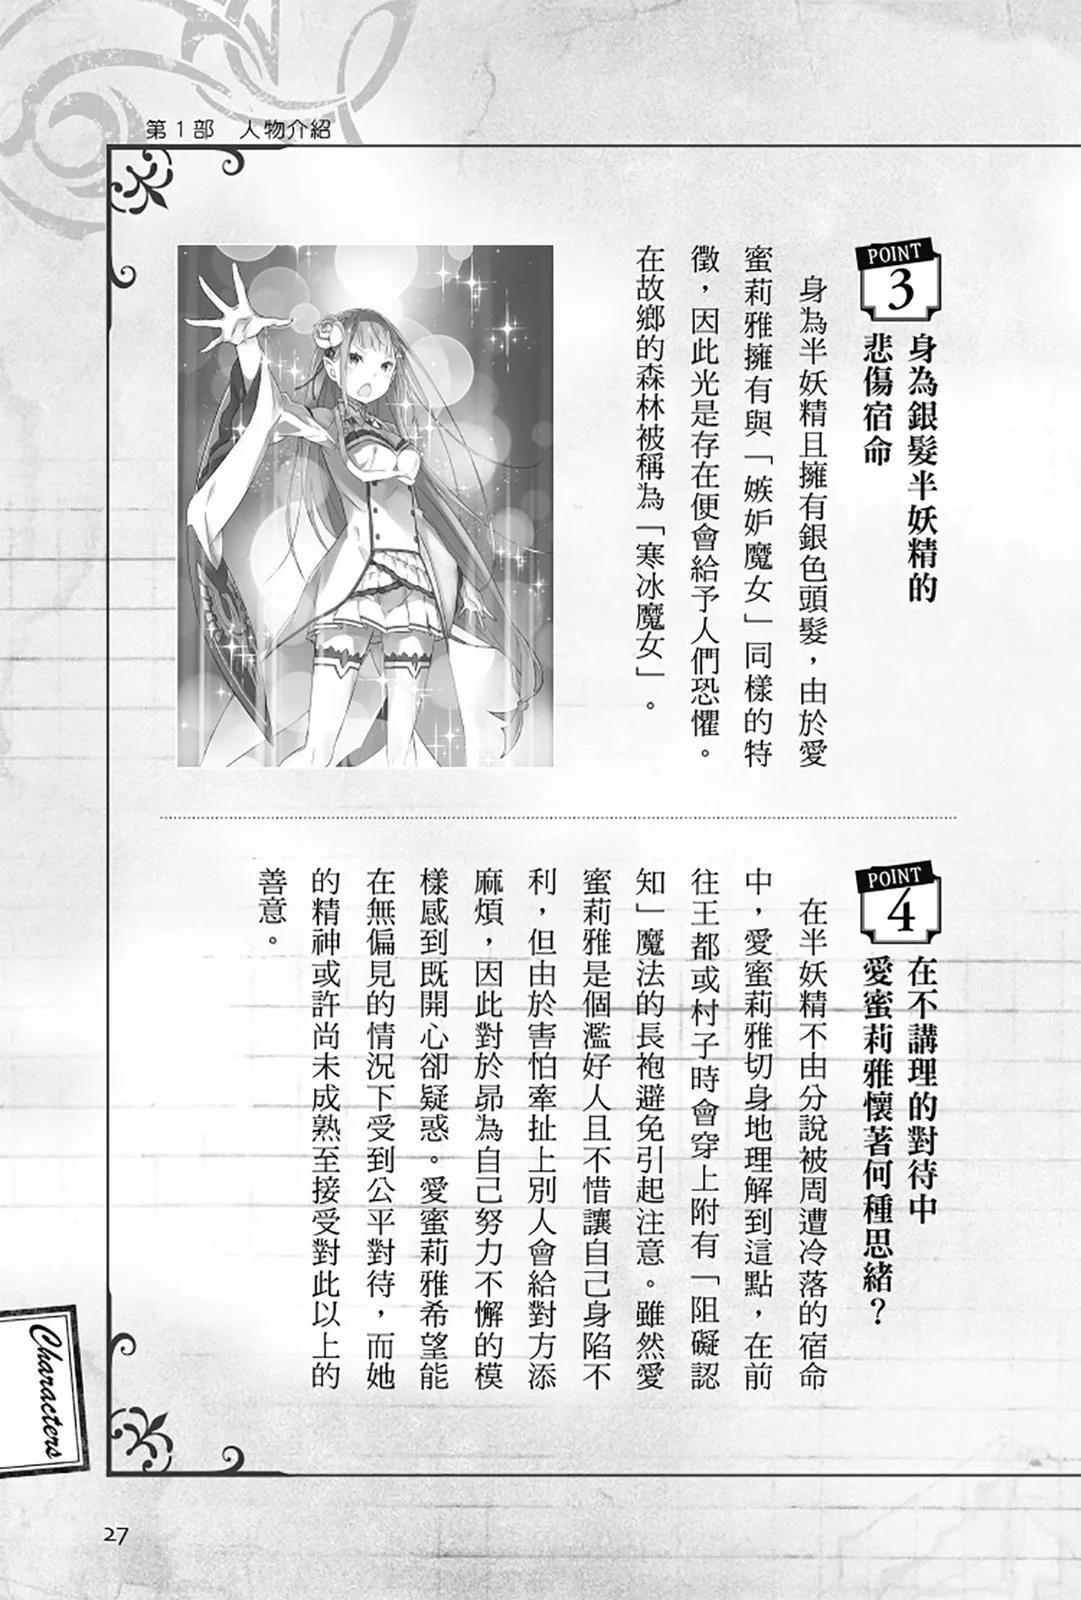 第1部　人物介紹
POINT
3
身為銀髮半妖精的
悲傷宿命
身為半妖精且擁有銀色頭髮，由於愛
蜜莉雅擁有與「嫉妒魔女」同樣的特
徵，因此光是存在便會給予人們恐懼。
在故鄉的森林被稱為「寒冰魔女」。
POINT
4
在不講理的對待中
愛蜜莉雅懷著何種思緒？
在半妖精不由分說被周遭冷落的宿命
中，愛蜜莉雅切身地理解到這點，在前
往王都或村子時會穿上附有「阻礙認
知」魔法的長袍避免引起注意。雖然愛
蜜莉雅是個濫好人且不惜讓自己身陷不
利，但由於害怕牽扯上別人會給對方添
麻煩，因此對於昴為自己努力不懈的模
樣感到既開心卻疑惑。愛蜜莉雅希望能
在無偏見的情況下受到公平對待，而她
的精神或許尚未成熟至接受對此以上的
善意。
Characters
27